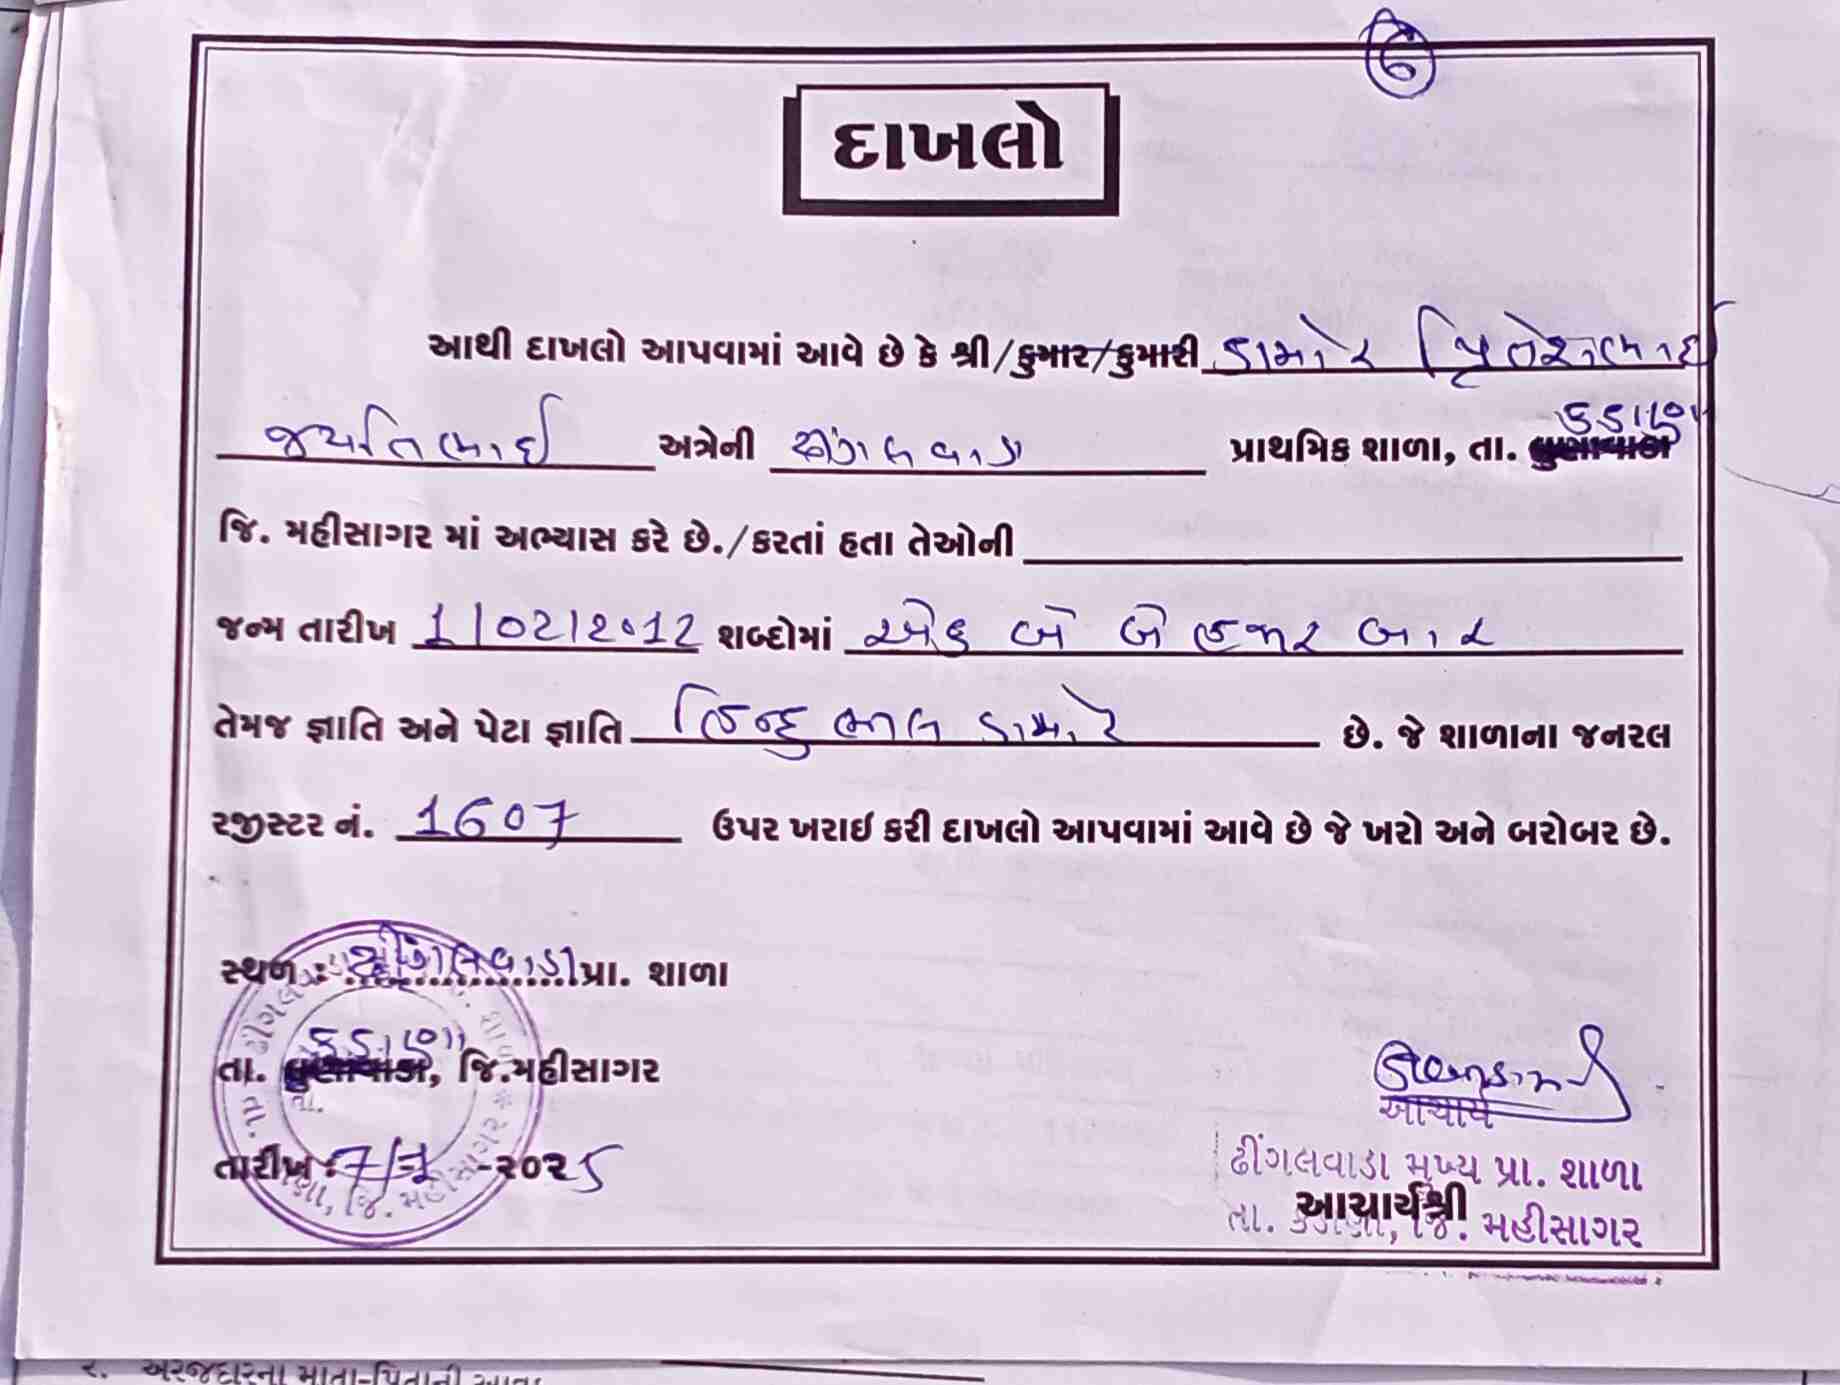 ૬
દાખલો
આથી દાખલો આપવામાં આવે છે કે શ્રી/કુમાર/કુમારી ડામોર પ્રિતેશભાઈ
જયંતિભાઈ અત્રેની ઢીંગલવાડા પ્રાથમિક શાળા, તા. કડાણા
જિ. મહીસાગર માં અભ્યાસ કરે છે./કરતાં હતા તેઓની
જન્મ તારીખ 1/02/2012 શબ્દોમાં એક બે બે હજાર બાર
તેમજ જ્ઞાતિ અને પેટા જ્ઞાતિ હિન્દુ ભીલ ડામોર છે. જે શાળાના જનરલ
રજીસ્ટર નં. 1607 ઉપર ખરાઇ કરી દાખલો આપવામાં આવે છે જે ખરો અને બરોબર છે.
સ્થળ : ઢીંગલવાડા પ્રા. શાળા
તા. કડાણા, જિ.મહીસાગર
તારીખ : 7/ -૨૦૨5
આચાર્ય
ઢીંગલવાડા મુખ્ય પ્રા. શાળા
આચાર્યશ્રી
તા. કડાણા, જિ. મહીસાગર
૨. અરજદારના માતા-પિતાની